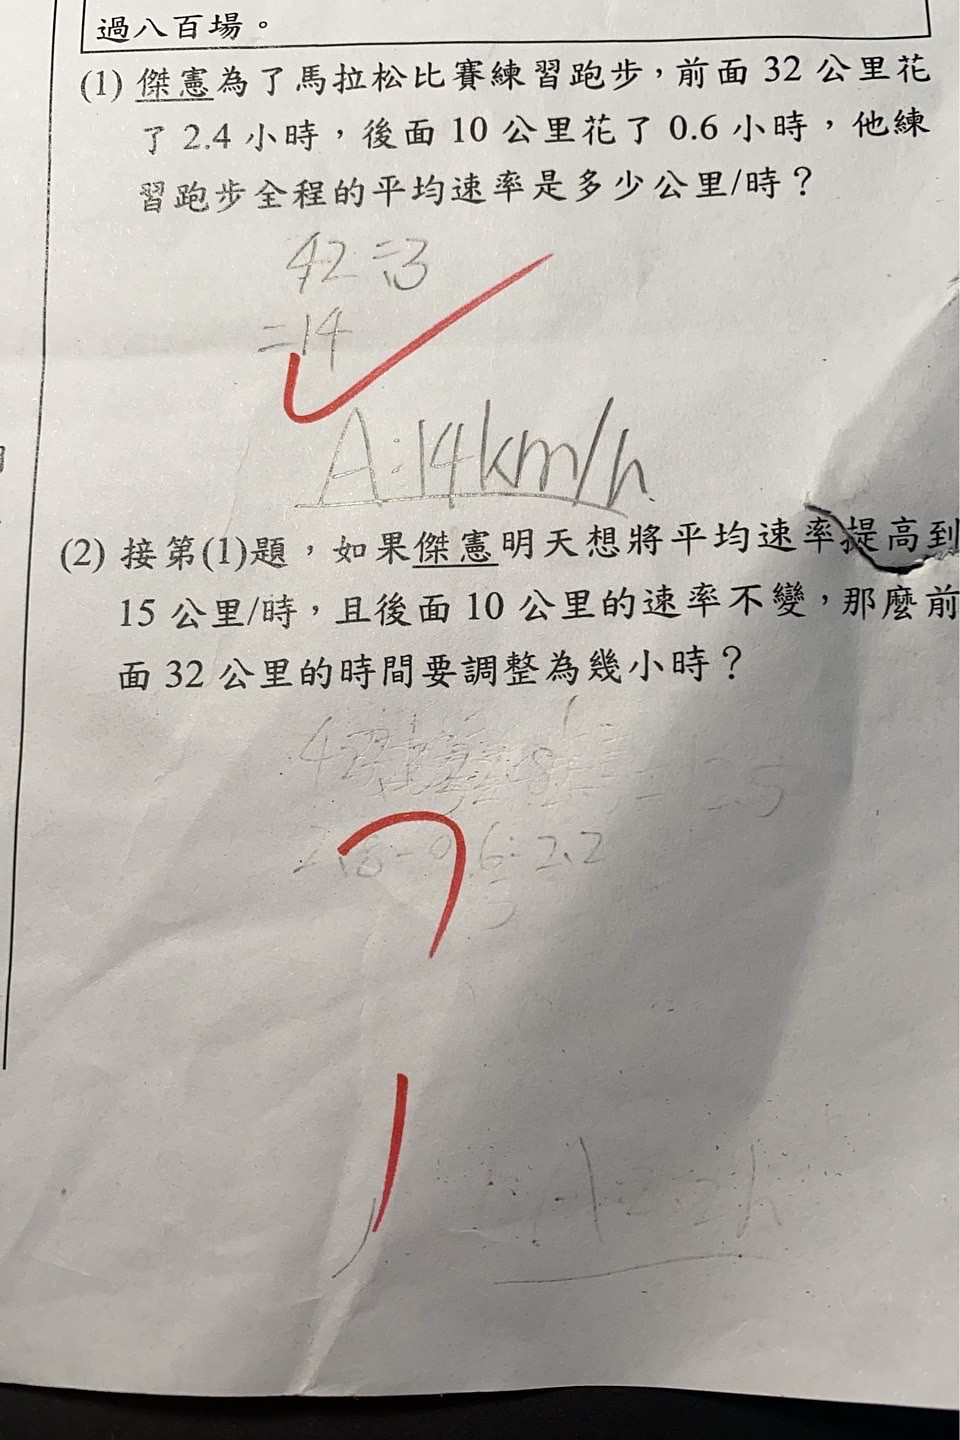 過八百場。
(1) 傑憲為了馬拉松比賽練習跑步，前面 32 公里花
了 2.4 小時，後面 10 公里花了 0.6 小時，他練
習跑步全程的平均速率是多少公里/時？
42÷3
=14
A:14km/h
(2) 接第(1)題，如果傑憲明天想將平均速率提高到
15 公里/時，且後面 10 公里的速率不變，那麼前
面 32 公里的時間要調整為幾小時？
2.8-0.6=2.2
A:2.2h